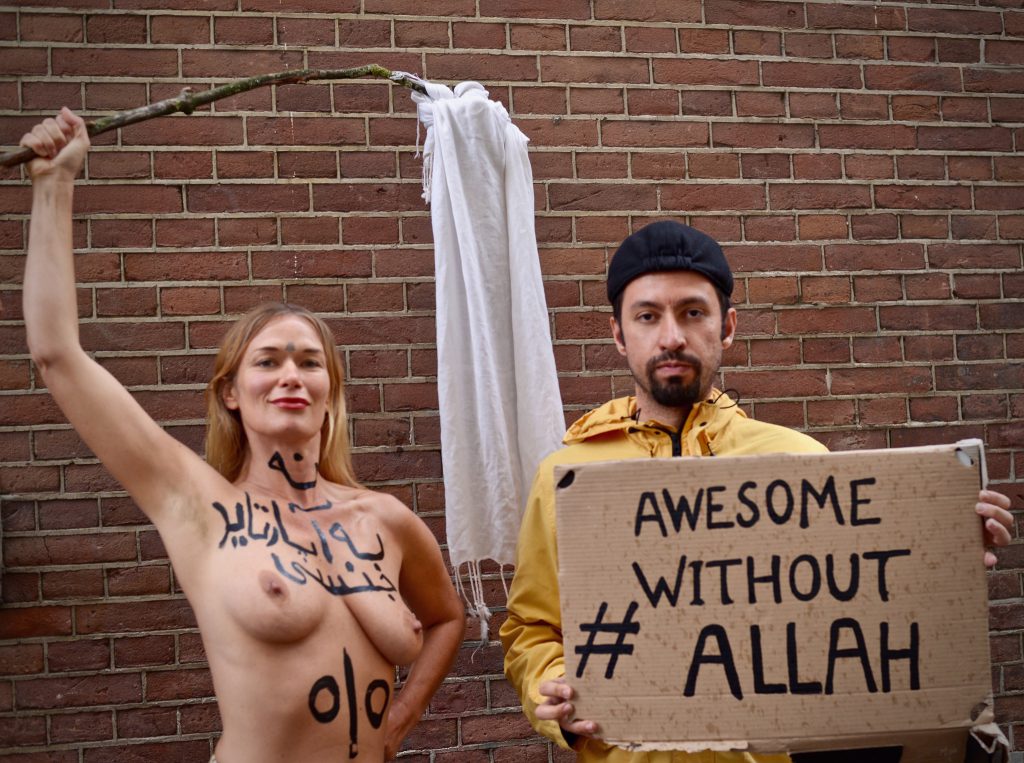 نه
به آپارتاید
جنسی
AWESOME
WITHOUT
# ALLAH